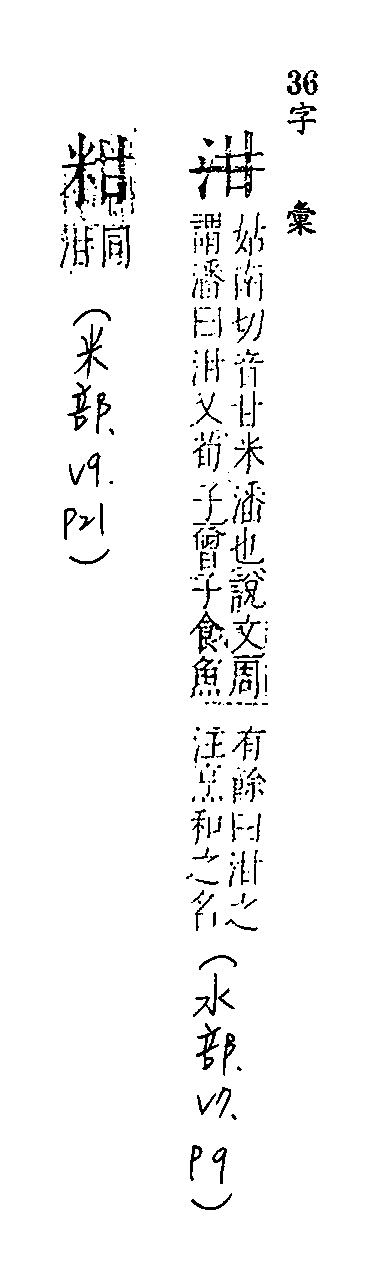 36字彙
泔
姑南切音甘米潘也說文周
謂潘曰泔又荀子曾子食魚
有餘曰泔之
注烹和之名
(水部、V7、P9)
䊇
同
泔
(米部、V9、P21)